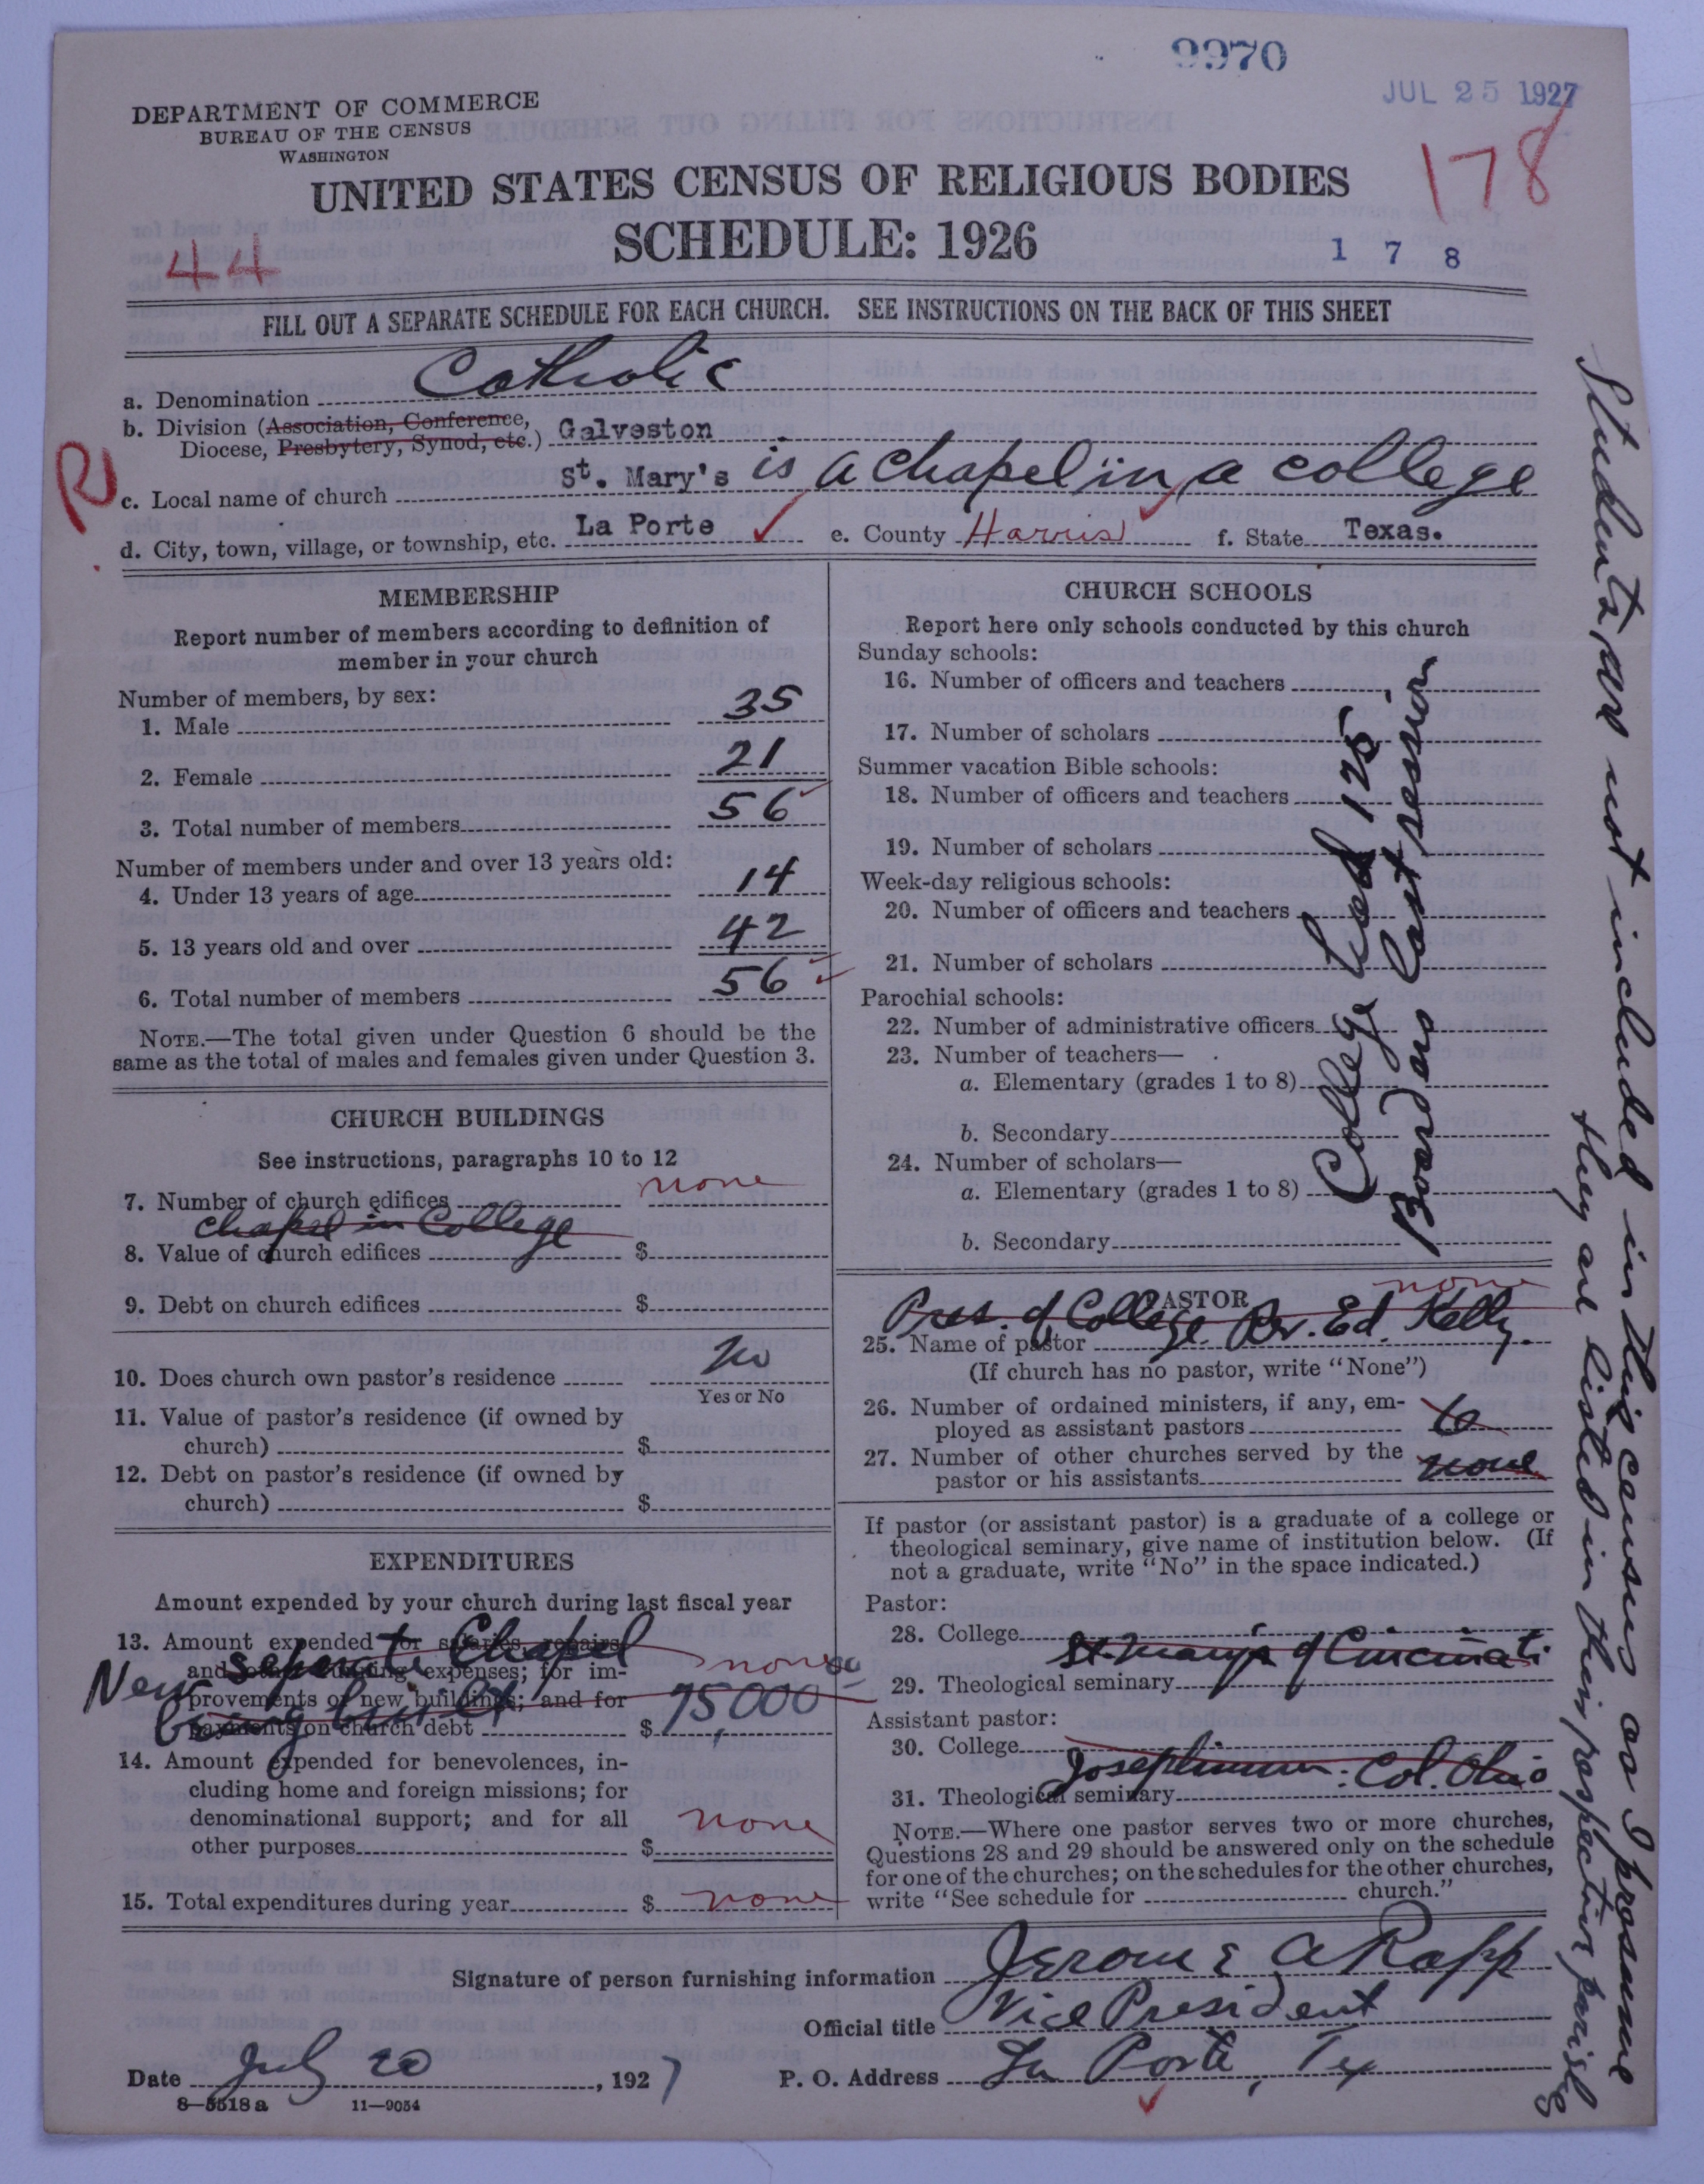 9970
JUL 25 1927
DEPARTMENT OF COMMERCE
BUREAU OF THE CENSUS
WASHINGTON
178
UNITED STATES CENSUS OF RELIGIOUS BODIES
SCHEDULE: 1926
44
1 7 8
FILL OUT A SEPARATE SCHEDULE FOR EACH CHURCH. SEE INSTRUCTIONS ON THE BACK OF THIS SHEET
a. Denomination Catholic
b. Division (Association, Conference,
Diocese, Presbytery, Synod, etc.) Galveston
R
c. Local name of church St. Mary's is a chapel in a college
d. City, town, village, or township, etc. La Porte ✓ e. County Harris ✓ f. State Texas.
MEMBERSHIP
Report number of members according to definition of
member in your church
Number of members, by sex:
1. Male 35
2. Female 21
3. Total number of members 56
Number of members under and over 13 years old:
4. Under 13 years of age 14
5. 13 years old and over 42
6. Total number of members 56
NOTE.—The total given under Question 6 should be the
same as the total of males and females given under Question 3.
CHURCH BUILDINGS
See instructions, paragraphs 10 to 12
7. Number of church edifices none
chapel in College
8. Value of church edifices $
9. Debt on church edifices $
10. Does church own pastor's residence No
Yes or No
11. Value of pastor's residence (if owned by
church) $
12. Debt on pastor's residence (if owned by
church) $
EXPENDITURES
Amount expended by your church during last fiscal year
13. Amount expended for salaries, repairs,
and other running expenses; for im-
provements or new buildings; and for
payments on church debt $ 75,000 00
none
New separate Chapel
being built
14. Amount expended for benevolences, in-
cluding home and foreign missions; for
denominational support; and for all
other purposes $ none
15. Total expenditures during year $ none
CHURCH SCHOOLS
Report here only schools conducted by this church
Sunday schools:
16. Number of officers and teachers
17. Number of scholars
Summer vacation Bible schools:
18. Number of officers and teachers
19. Number of scholars
Week-day religious schools:
20. Number of officers and teachers
21. Number of scholars
Parochial schools:
22. Number of administrative officers
23. Number of teachers—
a. Elementary (grades 1 to 8)
b. Secondary
24. Number of scholars—
a. Elementary (grades 1 to 8)
b. Secondary
College had 125
Boarders last session
PASTOR
none
25. Name of pastor Pres. of College Rev. Ed. Kelly.
(If church has no pastor, write "None")
26. Number of ordained ministers, if any, em-
ployed as assistant pastors 6
27. Number of other churches served by the
pastor or his assistants none
If pastor (or assistant pastor) is a graduate of a college or
theological seminary, give name of institution below. (If
not a graduate, write "No" in the space indicated.)
Pastor:
28. College
St. Mary's of Cincinati
29. Theological seminary
Assistant pastor:
30. College
Josephinum Col. Ohio
31. Theological seminary
NOTE.—Where one pastor serves two or more churches,
Questions 28 and 29 should be answered only on the schedule
for one of the churches; on the schedules for the other churches,
write "See schedule for church."
Signature of person furnishing information Jerome A Rapp
Official title Vice President
Date July 20, 1927 P. O. Address La Porte, Tex
8—5518 a 11—9054
Students are not included in this census as I presume
they are listed in their respective parishes